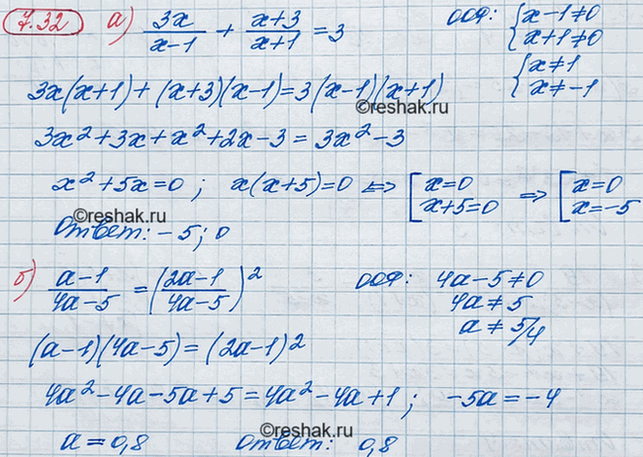 7.32 а) 3x/(x-1) + (x+3)/(x+1) = 3 ООФ: {x-1≠0
{x+1≠0
3x(x+1)+(x+3)(x-1)=3(x-1)(x+1) {x≠1
{x≠-1
©reshak.ru
3x²+3x+x²+2x-3=3x²-3
x²+5x=0; x(x+5)=0 ⟺ [x=0 ⟹ [x=0
[x+5=0 [x=-5
©reshak.ru
Ответ: -5; 0
б) (a-1)/(4a-5) = ((2a-1)/(4a-5))² ООФ: 4a-5≠0
4a≠5
a≠5/4
(a-1)(4a-5)=(2a-1)²
4a²-4a-5a+5=4a²-4a+1; -5a=-4
©reshak.ru
a=0,8 Ответ: 0,8